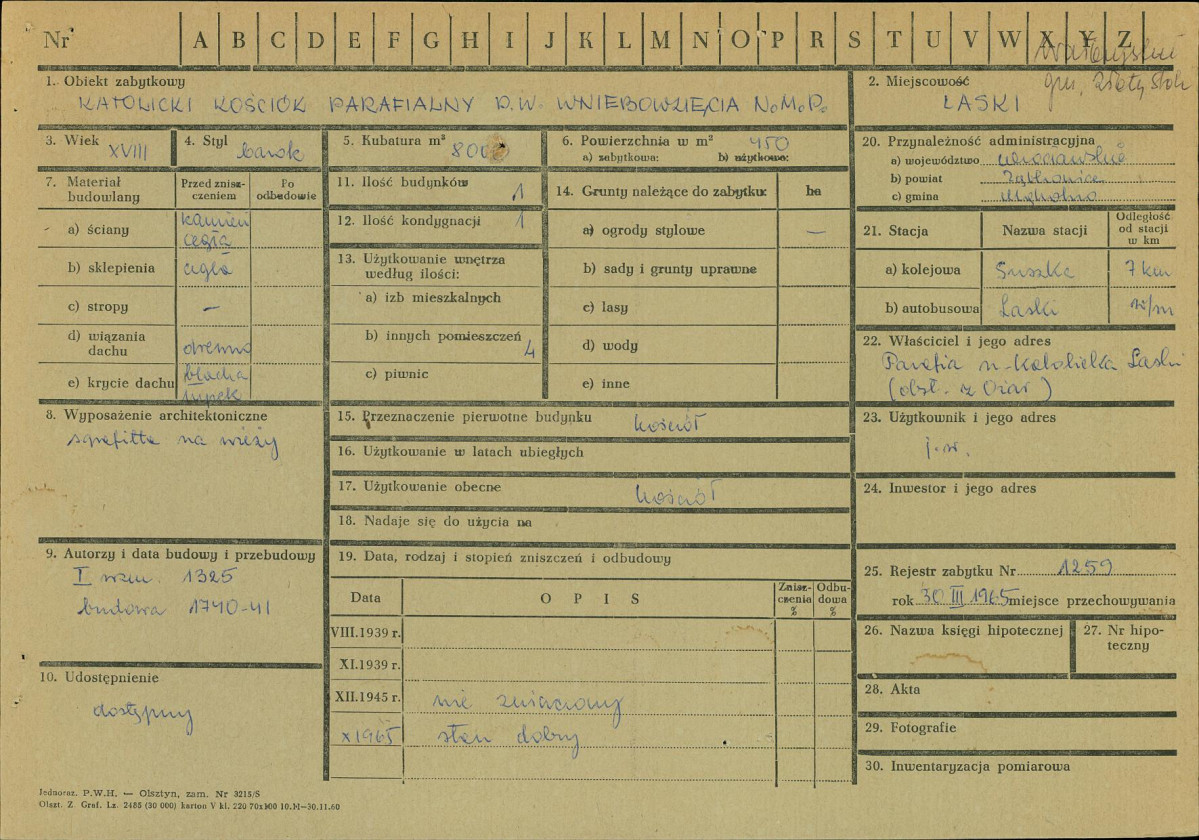 Nr A B C D E F G H I J K L M N O P R S T U V W X Y Z
gm. Złoty Stok
1. Obiekt zabytkowy
KATOLICKI KOŚCIÓŁ PARAFIALNY P.W. WNIEBOWZIĘCIA N.M.P.
2. Miejscowość
LASKI
3. Wiek XVIII
4. Styl barok
5. Kubatura m³ 8000
6. Powierzchnia w m² 450
a) zabytkowa: b) użytkowa:
7. Materiał budowlany
Przed zniszczeniem
Po odbudowie
a) ściany kamień cegła
b) sklepienia cegła
c) stropy —
d) wiązania dachu drewno
e) krycie dachu blacha łupek
8. Wyposażenie architektoniczne
sgrafitta na wieży
9. Autorzy i data budowy i przebudowy
I wzm. 1325
budowa 1740-41
10. Udostępnienie
dostępny
11. Ilość budynków 1
12. Ilość kondygnacji 1
13. Użytkowanie wnętrza według ilości:
a) izb mieszkalnych
b) innych pomieszczeń 4
c) piwnic
14. Grunty należące do zabytku: ha
a) ogrody stylowe —
b) sady i grunty uprawne
c) lasy
d) wody
e) inne
15. Przeznaczenie pierwotne budynku kościół
16. Użytkowanie w latach ubiegłych
17. Użytkowanie obecne kościół
18. Nadaje się do użycia na
19. Data, rodzaj i stopień zniszczeń i odbudowy
Data OPIS Zniszczenia % Odbudowa %
VIII.1939 r.
XI.1939 r.
XII.1945 r. nie zniszczony
X 1965 stan dobry
20. Przynależność administracyjna
a) województwo wrocławskie
b) powiat Ząbkowice
c) gmina
21. Stacja Nazwa stacji Odległość od stacji w km
a) kolejowa Suszka 7 km
b) autobusowa Laski w/m
22. Właściciel i jego adres
Parafia rz-katolicka Laski
(obsł. z Ożar)
23. Użytkownik i jego adres
j.w.
24. Inwestor i jego adres
25. Rejestr zabytku Nr 1259
rok 30 III 1965 miejsce przechowywania
26. Nazwa księgi hipotecznej
27. Nr hipoteczny
28. Akta
29. Fotografie
30. Inwentaryzacja pomiarowa
Jednoraz. P.W.H. — Olsztyn, zam. Nr 3215/S
Olszt. Z. Graf. Lz. 2485 (30 000) karton V kl. 220 70x100 10.XI—30.11.60